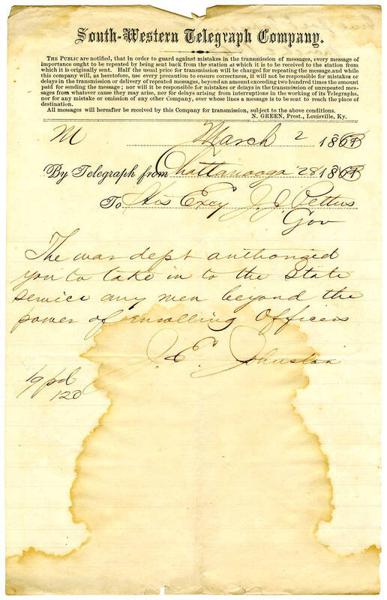 South-Western Telegraph Company.
THE PUBLIC are notified, that in order to guard against mistakes in the transmission of messages, every message of
importance ought to be repeated by being sent back from the station at which it is to be received to the station from
which it is originally sent. Half the usual price for transmission will be charged for repeating the message, and while
this company will, as heretofore, use every precaution to ensure correctness, it will not be responsible for mistakes or
delays in the transmission or delivery of repeated messages, beyond an amount exceeding two hundred times the amount
paid for sending the message; nor will it be responsible for mistakes or delays in the transmission of unrepeated messages
from whatever cause they may arise, nor for delays arising from interruptions in the working of its Telegraphs,
nor for any mistake or omission of any other Company, over whose lines a message is to be sent to reach the place of
destination.
All messages will hereafter be received by this Company for transmission, subject to the above conditions.
N. GREEN, Prest., Louisville, Ky.
M March 2 186
By Telegraph from Chattanooga 28 186
To His Excy J. J. Pettus
Gov
The war dept authorized
you to take in to the State
service any men beyond the
power of enrolling Officers
J. E. Johnston
19 pd
120